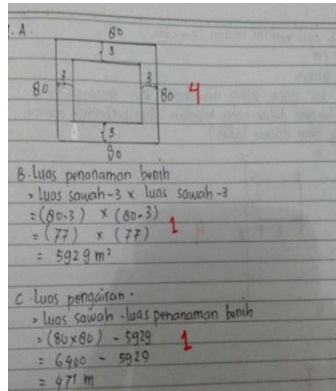 1. A. 80
3
3 3
80 80 4
3
80
B. Luas penanaman benih
> Luas sawah - 3 x luas sawah - 3
= (80-3) x (80-3)
= (77) x (77) 1
= 5929 m²
C. Luas pengairan -
> Luas sawah - luas penanaman benih
> (80x80) - 5929 1
= 6400 - 5929
= 471 m